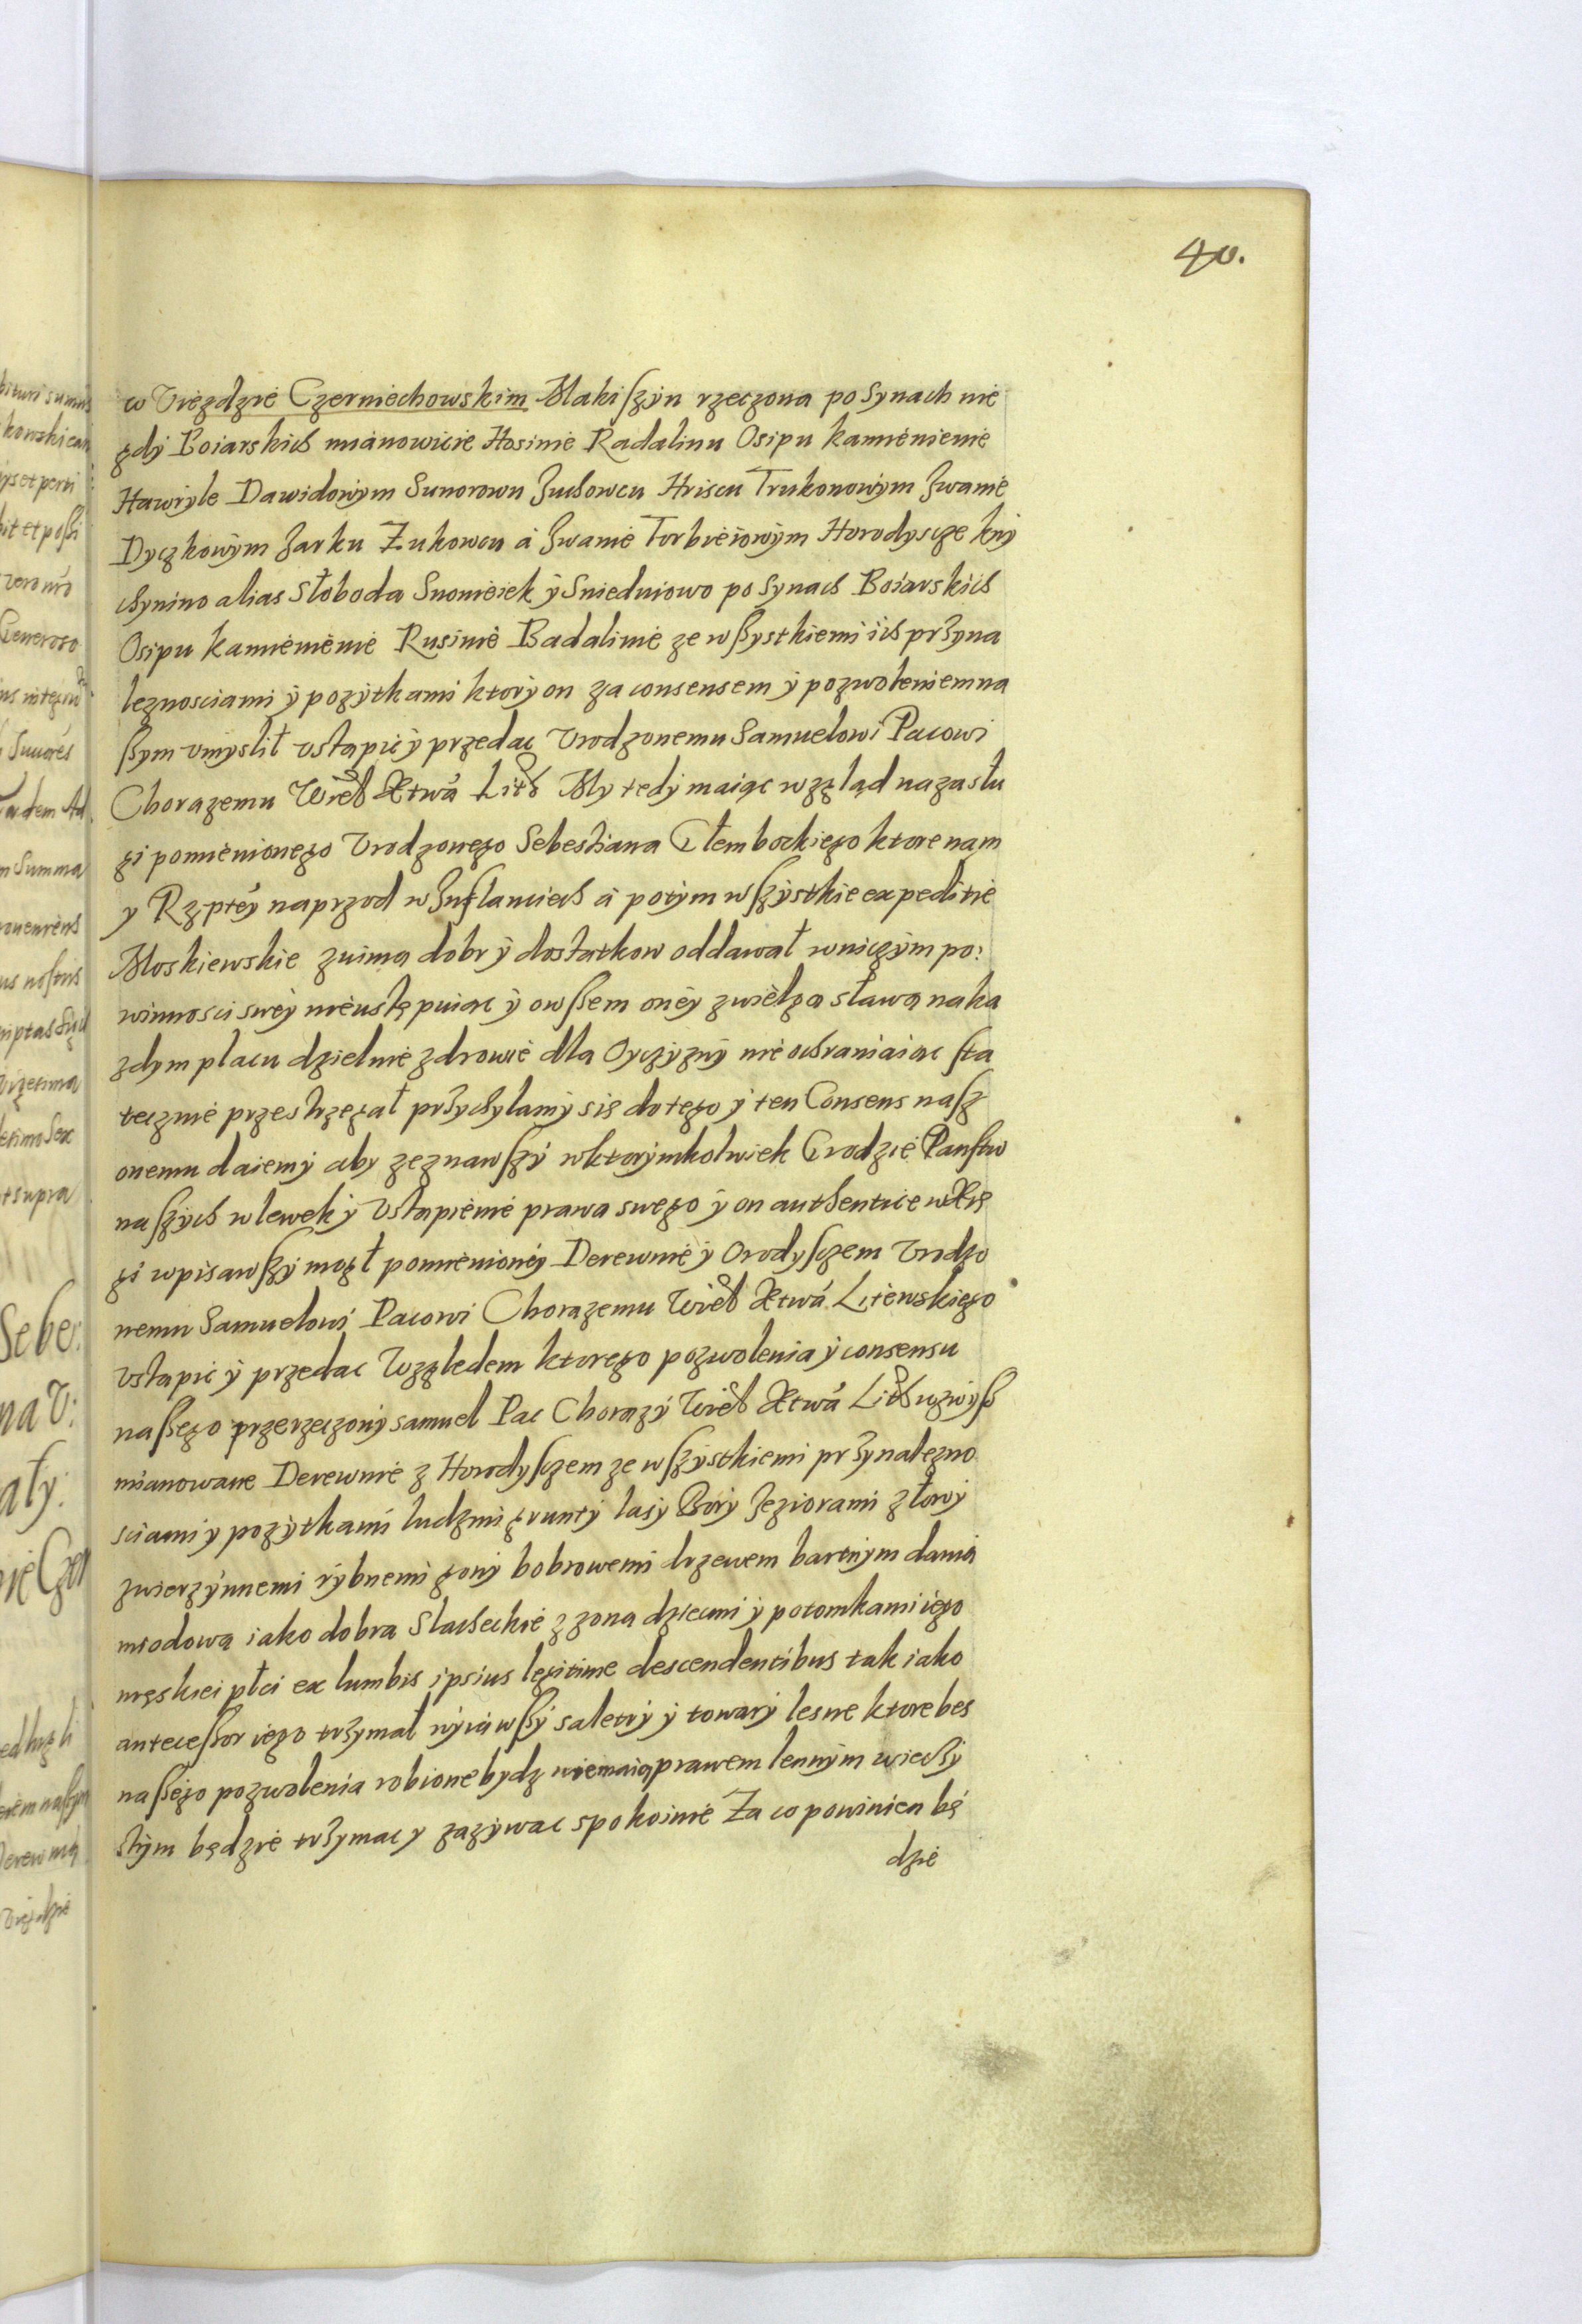 40.
w Uiezdzie Czerniechowskim Makiszyn rzeczona po Synach nie
gdy Boiarskich mianowicie Hosinie Radalinu Osipu kamienienie
Hawryle Dawidowym Sunorowu Juchowcu Hriscu Trukonowym Jwanie
Dyczkowym Jarku Zukowcu a Jwanie Torbieiowym Horodyscze kny
chynino alias Słoboda Snowieiek y Sniedniowo po Synach Boiarskich
Osipu kamienienie Rusinie Badalinie ze wszystkiemi ich przyna
leznosciami y pozytkami ktory on za consensem y pozwoleniem na
szym umyslił ustapic y przedac Urodzonemu Samuelowi Pacowi
Chorazemu Wielo Xtwa Lito My tedy maiąc wzgląd na zasłu
gi pomienionego Urodzonego Sebestiana Głembockiego ktore nam
y Rzptey naprzod w Inflanciech a potym wszystkie expeditie
Moskiewskie zuima dobr y dostatkow oddawał w niczym po:
winnosci swey nieustępuiac y owszem oney z wielga sławą na ka
zdym placu dzielnie zdrowie dla Oyczyzny nie ochraniaiac sta
tecznie przestrzegał przychylamy się do tego y ten Consens nasz
onemu daiemy aby zeznawszy w ktorymkolwiek Grodzie Panstw
naszych wlewek y Ustapienie prawa swego y on authentice w Xię
gi wpisawszy mogł pomienioney Derewnie y Orodysczem Urodzo
nemu Samuelowi Pacowi Chorazemu Wielo Xtwa Litewskiego
Ustapic y przedac Względem ktorego pozwolenia y consensu
naszego przerzeczony Samuel Pac Chorązy Wielo Xtwa Lito wzwysz
mianowane Derewnie z Horodysczem ze wszystkiemi przynalezno
sciami y pozytkami ludzmi grunty lasy Bory Jeziorami złowy
zwierzynnemi rybnemi gony bobrowemi drzewem bartnym dania
miodową iako dobra Slacheckie z zona dziecmi y potomkami iego
męskiei płci ex lumbis ipsius legitime descendentibus tak iako
antecessor iego trzymał wyiąwszy saletry y towary lesne ktore bes
naszego pozwolenia robione bydz niemaią prawem lennym wieczy
stym będzie trzymac y zazywac spokoinie Za co powinien bę
dzie